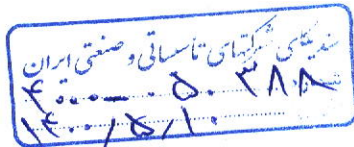 سندیکای شرکتهای تاسیساتی و صنعتی ایران
۴۰۰۰-۵۰۳۸۸
۱۴۰۰/۵/۱۰